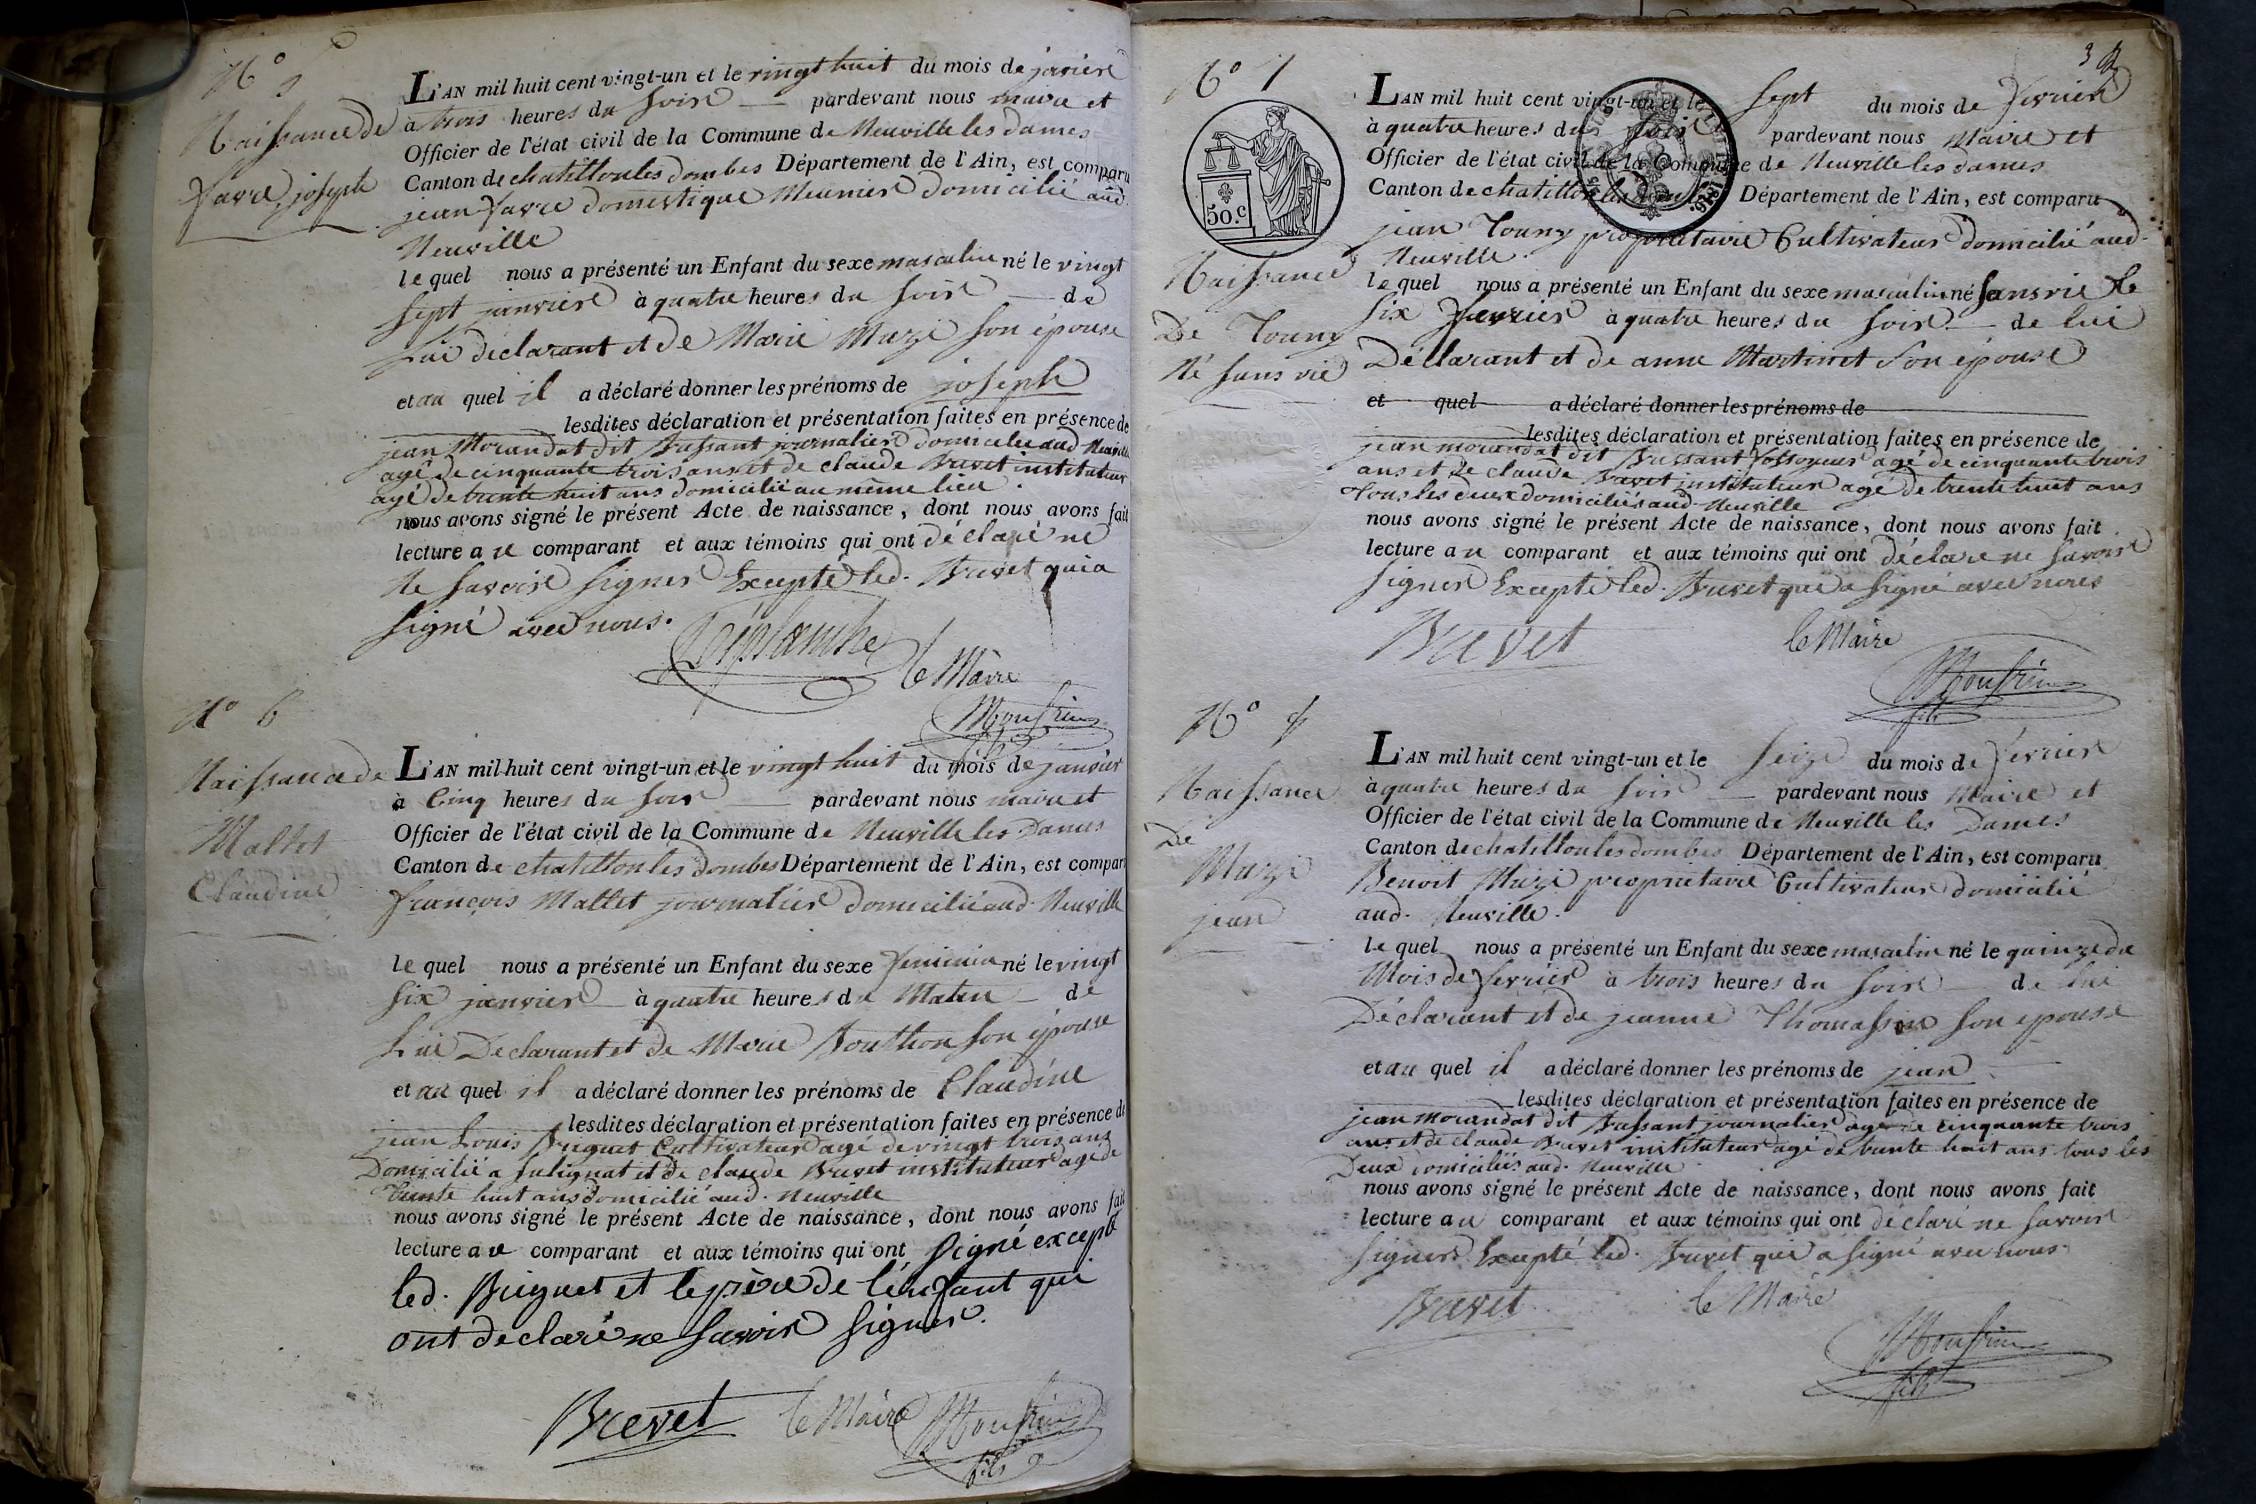 N° 5
Naissance de
Favre joseph
L'AN mil huit cent vingt-un et le vingt huit du mois de janvier
à trois heures du soir pardevant nous maire et
Officier de l'état civil de la Commune de Neuville les dames
Canton de chatillon les dombes Département de l'Ain, est comparu
jean favre domestique Meunier domicilié aud.
Neuville
le quel nous a présenté un Enfant du sexe masculin né le vingt
sept janvier à quatre heures du soir de
Lui déclarant et de Marie Muzi son épouse
et au quel il a déclaré donner les prénoms de joseph
lesdites déclaration et présentation faites en présence de
jean Morandat dit Bressant journalier domicilié aud Neuville
agé de cinquante trois ans et de claude Brevet instituteur
agé de trente huit ans domicilié au même lieu.
nous avons signé le présent Acte de naissance, dont nous avons fait
lecture au comparant et aux témoins qui ont déclaré ne
Ne savoir signer Excepté led. Brevet qui a
signé avec nous.
le Maire
N° 6
Naissance de
Mallet
Claudine
L'AN mil huit cent vingt-un et le vingt huit du mois de janvier
à Cinq heures du soir pardevant nous maire et
Officier de l'état civil de la Commune de Neuville les Dames
Canton de chatillon les dombes Département de l'Ain, est comparu
françois Mallet journalier domicilié aud. Neuville
le quel nous a présenté un Enfant du sexe feminin né le vingt
six janvier à quatre heures du Matin de
Lui Declarant et de Marie Bouthon son épouse
et au quel il a déclaré donner les prénoms de Claudine
lesdites déclaration et présentation faites en présence de
jean Louis Buiguet Cultivateur agé de vingt trois ans
Domicilié a Sulignat et de claude Brevet instituteur agé de
trente huit ans domicilié aud. Neuville
nous avons signé le présent Acte de naissance, dont nous avons fait
lecture au comparant et aux témoins qui ont signé excepté
led. Buiguet et le père de l'enfant qui
ont declaré ne savoir signer.
Brevet le Maire
fils
3
N° 7
50.c
1816.
Naissance
De Touny
Né sans vie
L'AN mil huit cent vingt-un et le sept du mois de fevrier
à quatre heures du soir pardevant nous Maire et
Officier de l'état civil de la Commune de Neuville les dames
Canton de chatillon les dombes Département de l'Ain, est comparu
jean Touny propriétaire Cultivateur domicilié aud.
Neuville.
le quel nous a présenté un Enfant du sexe masculin né sans vie le
six fevrier à quatre heures du soir de lui
Déclarant et de anne Martinet son épouse
et quel a déclaré donner les prénoms de
lesdites déclaration et présentation faites en présence de
jean morandat dit Bressant fossoyeur agé de cinquante trois
ans et de claude Brevet instituteur agé de trente huit ans
tous les deux domiciliés aud. Neuville
nous avons signé le présent Acte de naissance, dont nous avons fait
lecture au comparant et aux témoins qui ont déclaré ne savoir
signer Excepté led. Brevet qui a signé avec nous
Brevet le Maire
fils
N°
Naissance
De
Muzi
jean
L'AN mil huit cent vingt-un et le seize du mois de fevrier
à quatre heures du soir pardevant nous Maire et
Officier de l'état civil de la Commune de Neuville les Dames
Canton de chatillon les dombes Département de l'Ain, est comparu
Benoit Muzi propriétaire Cultivateur domicilié
aud. Neuville.
le quel nous a présenté un Enfant du sexe masculin né le quinze du
Mois de fevrier à trois heures du soir de lui
Déclarant et de jeanne Thomasson son épouse
et au quel il a déclaré donner les prénoms de jean
lesdites déclaration et présentation faites en présence de
jean Morandat dit Bressant journalier agé de cinquante trois
ans et de claude Brevet instituteur agé de trente huit ans tous les
Deux domiciliés aud. Neuville
nous avons signé le présent Acte de naissance, dont nous avons fait
lecture au comparant et aux témoins qui ont déclaré ne savoir
signer Excepté led. Brevet qui a signé avec nous
Brevet le Maire
fils